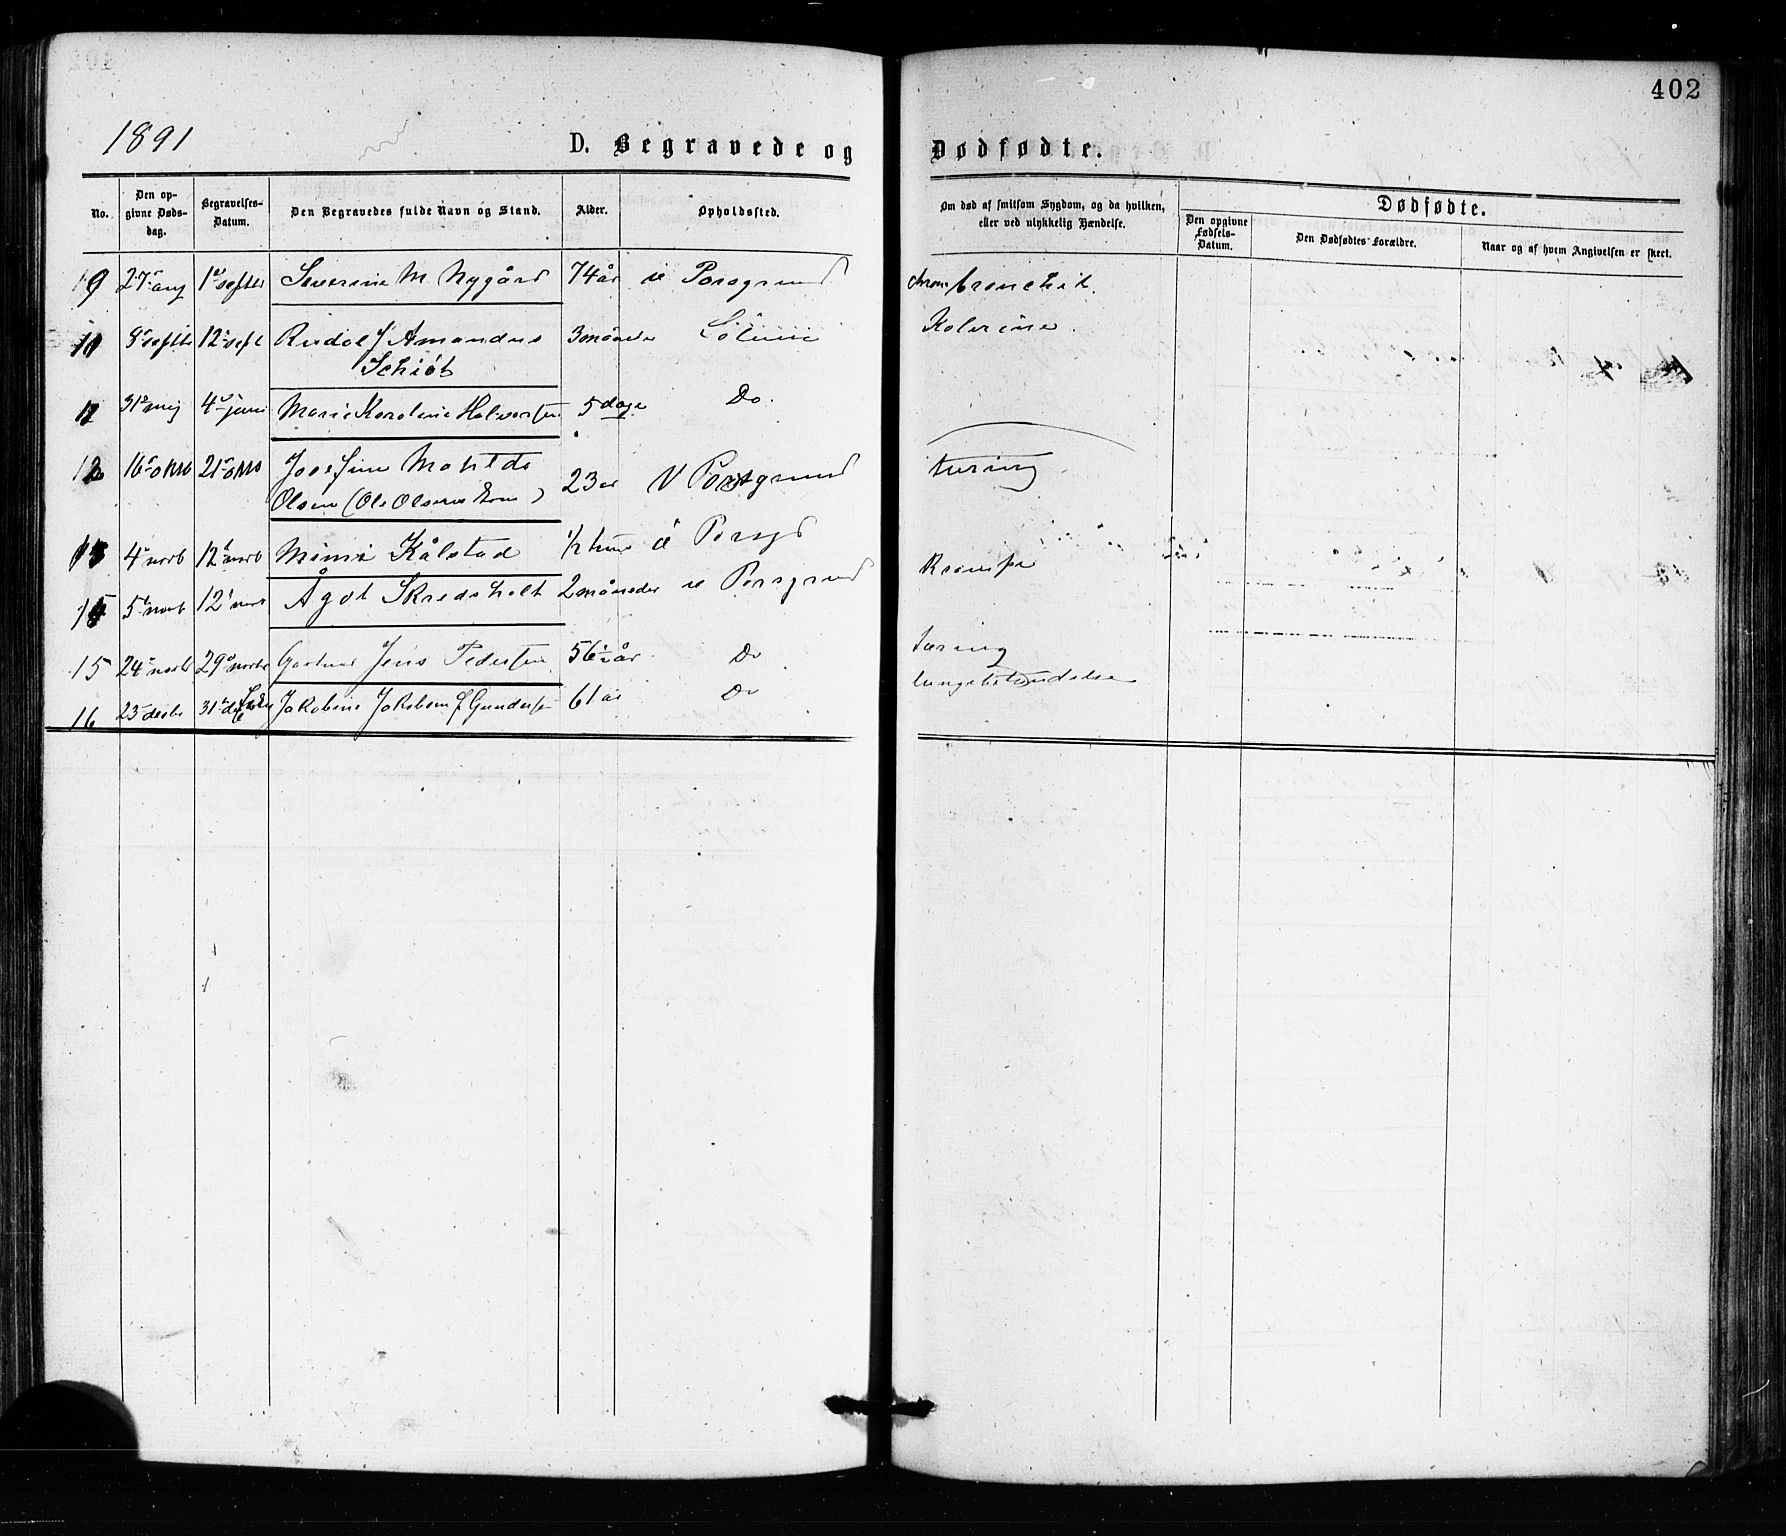 402
1891 D. Begravede og Dødfødte.
No. Den opgivne Dødsdag. Begravelses-Datum. Den Begravedes fulde Navn og Stand. Alder. Opholdssted. Om død af smitsom Sygdom, og da hvilken, eller ved ulykkelig Hændelse. Dødfødte.
Den opgivne Fødsels-Datum. Den Dødfødtes Forældre. Naar og af hvem Angivelsen er skeet.
27 aug 1 septbr Severine M Nygård 74 år Porsgrund chron bronchit.
septb 12 sept Rudolf Amandus 3 måneder Kolerine
Schiöt
31 maj 4 juni Marie Karoline Halvorsen 5 dage Do.
12 16 oktb 21 oktb Josefine Matilde 23 år V Porsgrund turing
Olsen (Ole Olsens Kone)
4 novb 12 novb Mimi Kålstad ½ time Porsgd
5 novb 12 novb Ågot Skredsholt 2 måneder Porsgrund Krampe
15 24 novb 29 novbr Jens Pedersen 56 ½ år Do tæring
16 23 decbr 31 Jakobine Jakobsen f Gundersen 61 år Do lungebetændelse